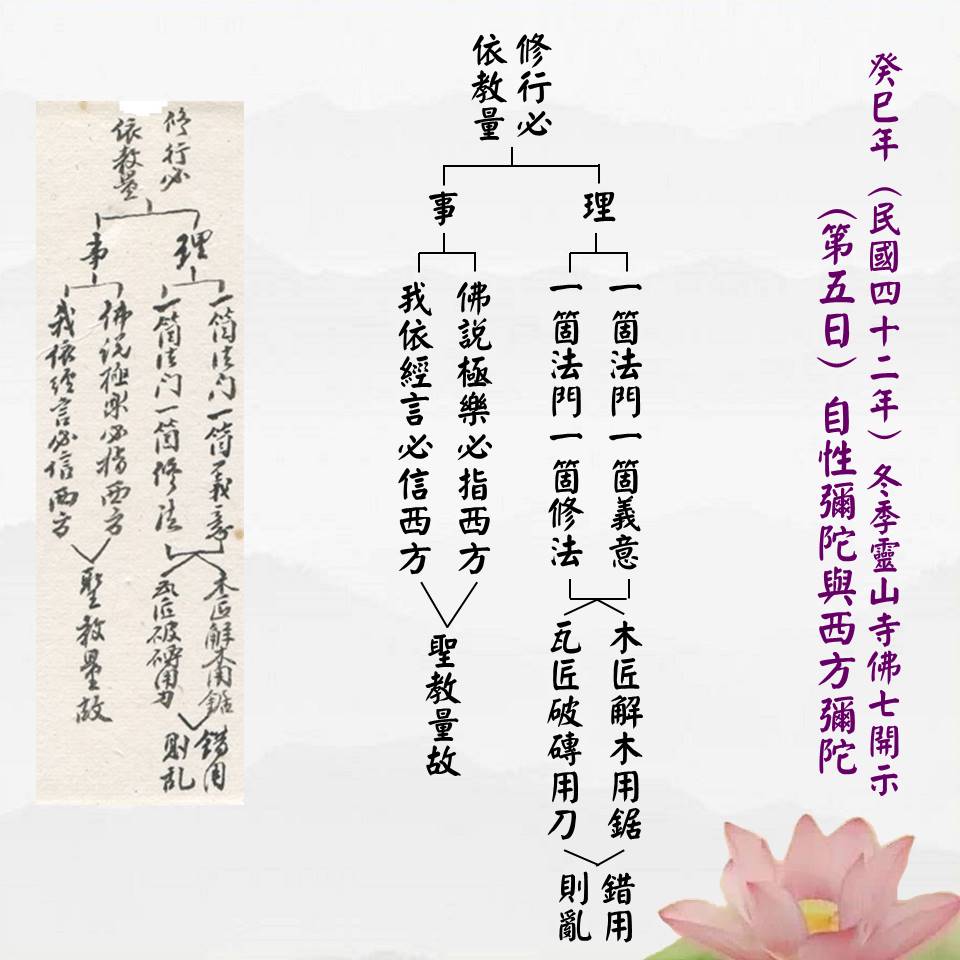 癸巳年（民國四十二年）冬季靈山寺佛七開示
（第五日）自性彌陀與西方彌陀
修行必
依教量
理
事
一箇法門一箇義意
一箇法門一箇修法
佛說極樂必指西方
我依經言必信西方
木匠解木用鋸
瓦匠破磚用刀
聖教量故
錯用
則亂
修行必
依教量
理
事
一箇法门一箇義意
一箇法门一箇修法
佛说極樂必指西方
我依經言必信西方
木匠解木用鋸
瓦匠破磚用刀
聖教量故
錯用
則乱